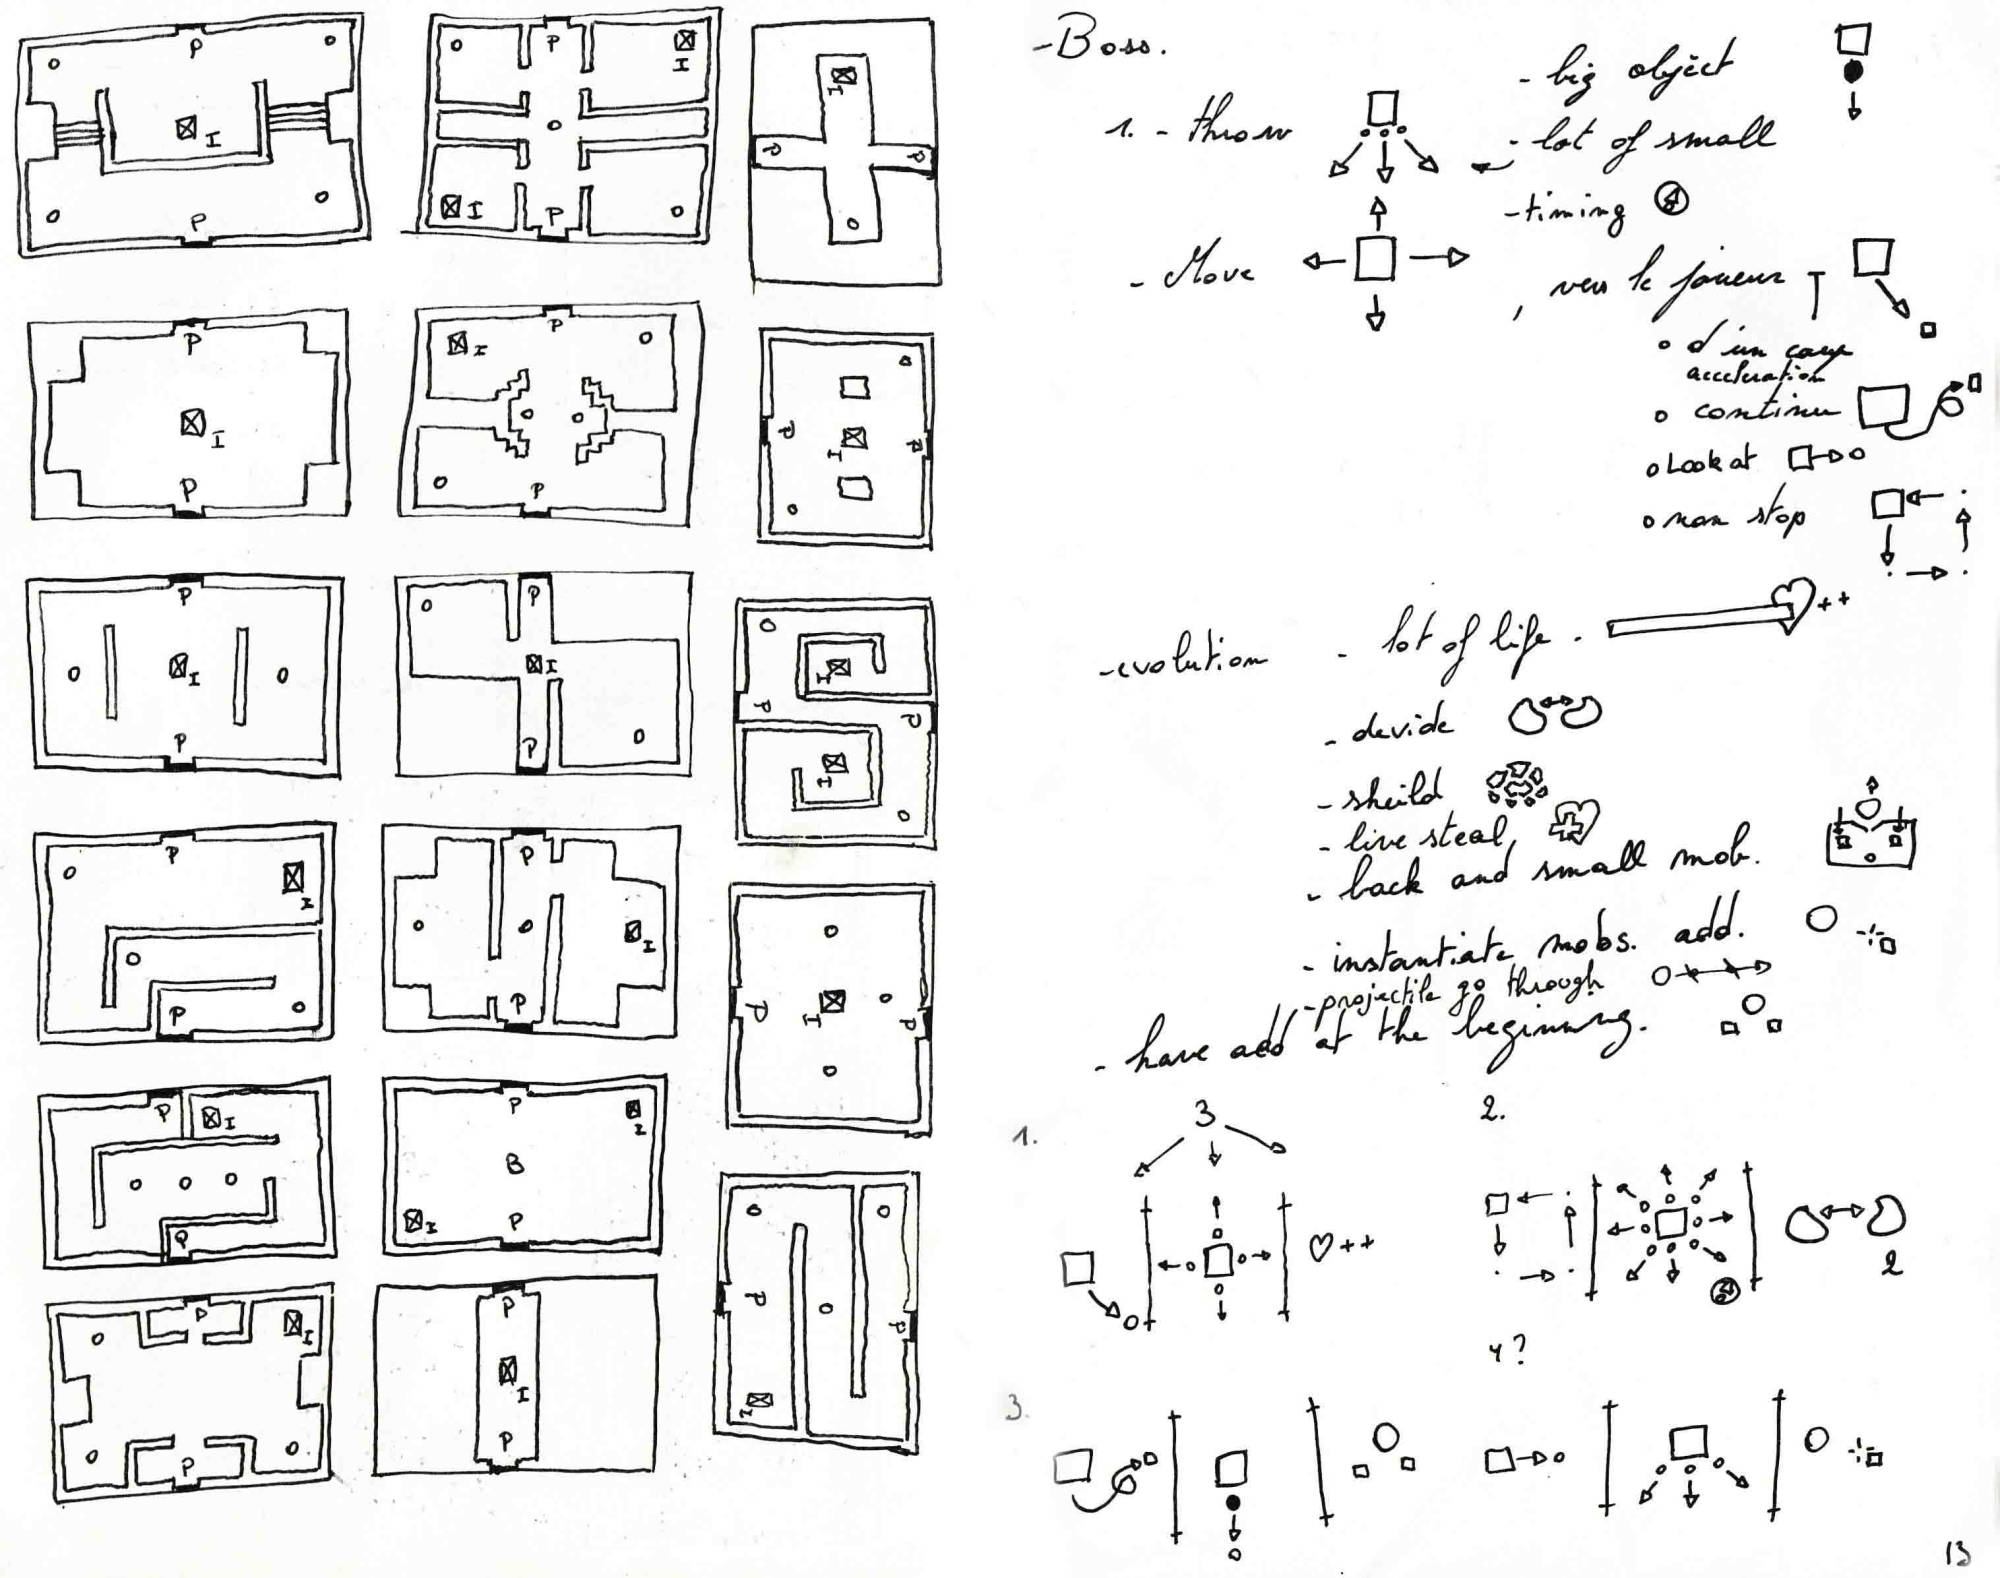 P
I
P
P
I
I
P
I
P
P
P
I
P
I
P
P
I
P
P
I
P
P
I
P
P
I
P
I
P
P
I
P
P
I
P
P
I
P
P
I
P
P
I
P
P
I
P
P
I
P
I
B
P
I
P
I
P
P
P
I
P
P
I
P
I
P
-Boss.
1. - throw
- big object
- lot of small
- timing
- Move
, vers le joueur
o d'un coup
acceleration
o continu
o Look at
o non stop
-evolution
- lot of life.
++
- devide
- sheild
- live steal
- back and small mob.
- instantiate mobs. add.
- projectile go through
- have add at the beginning.
1.
3
2.
++
2
4?
3.
13